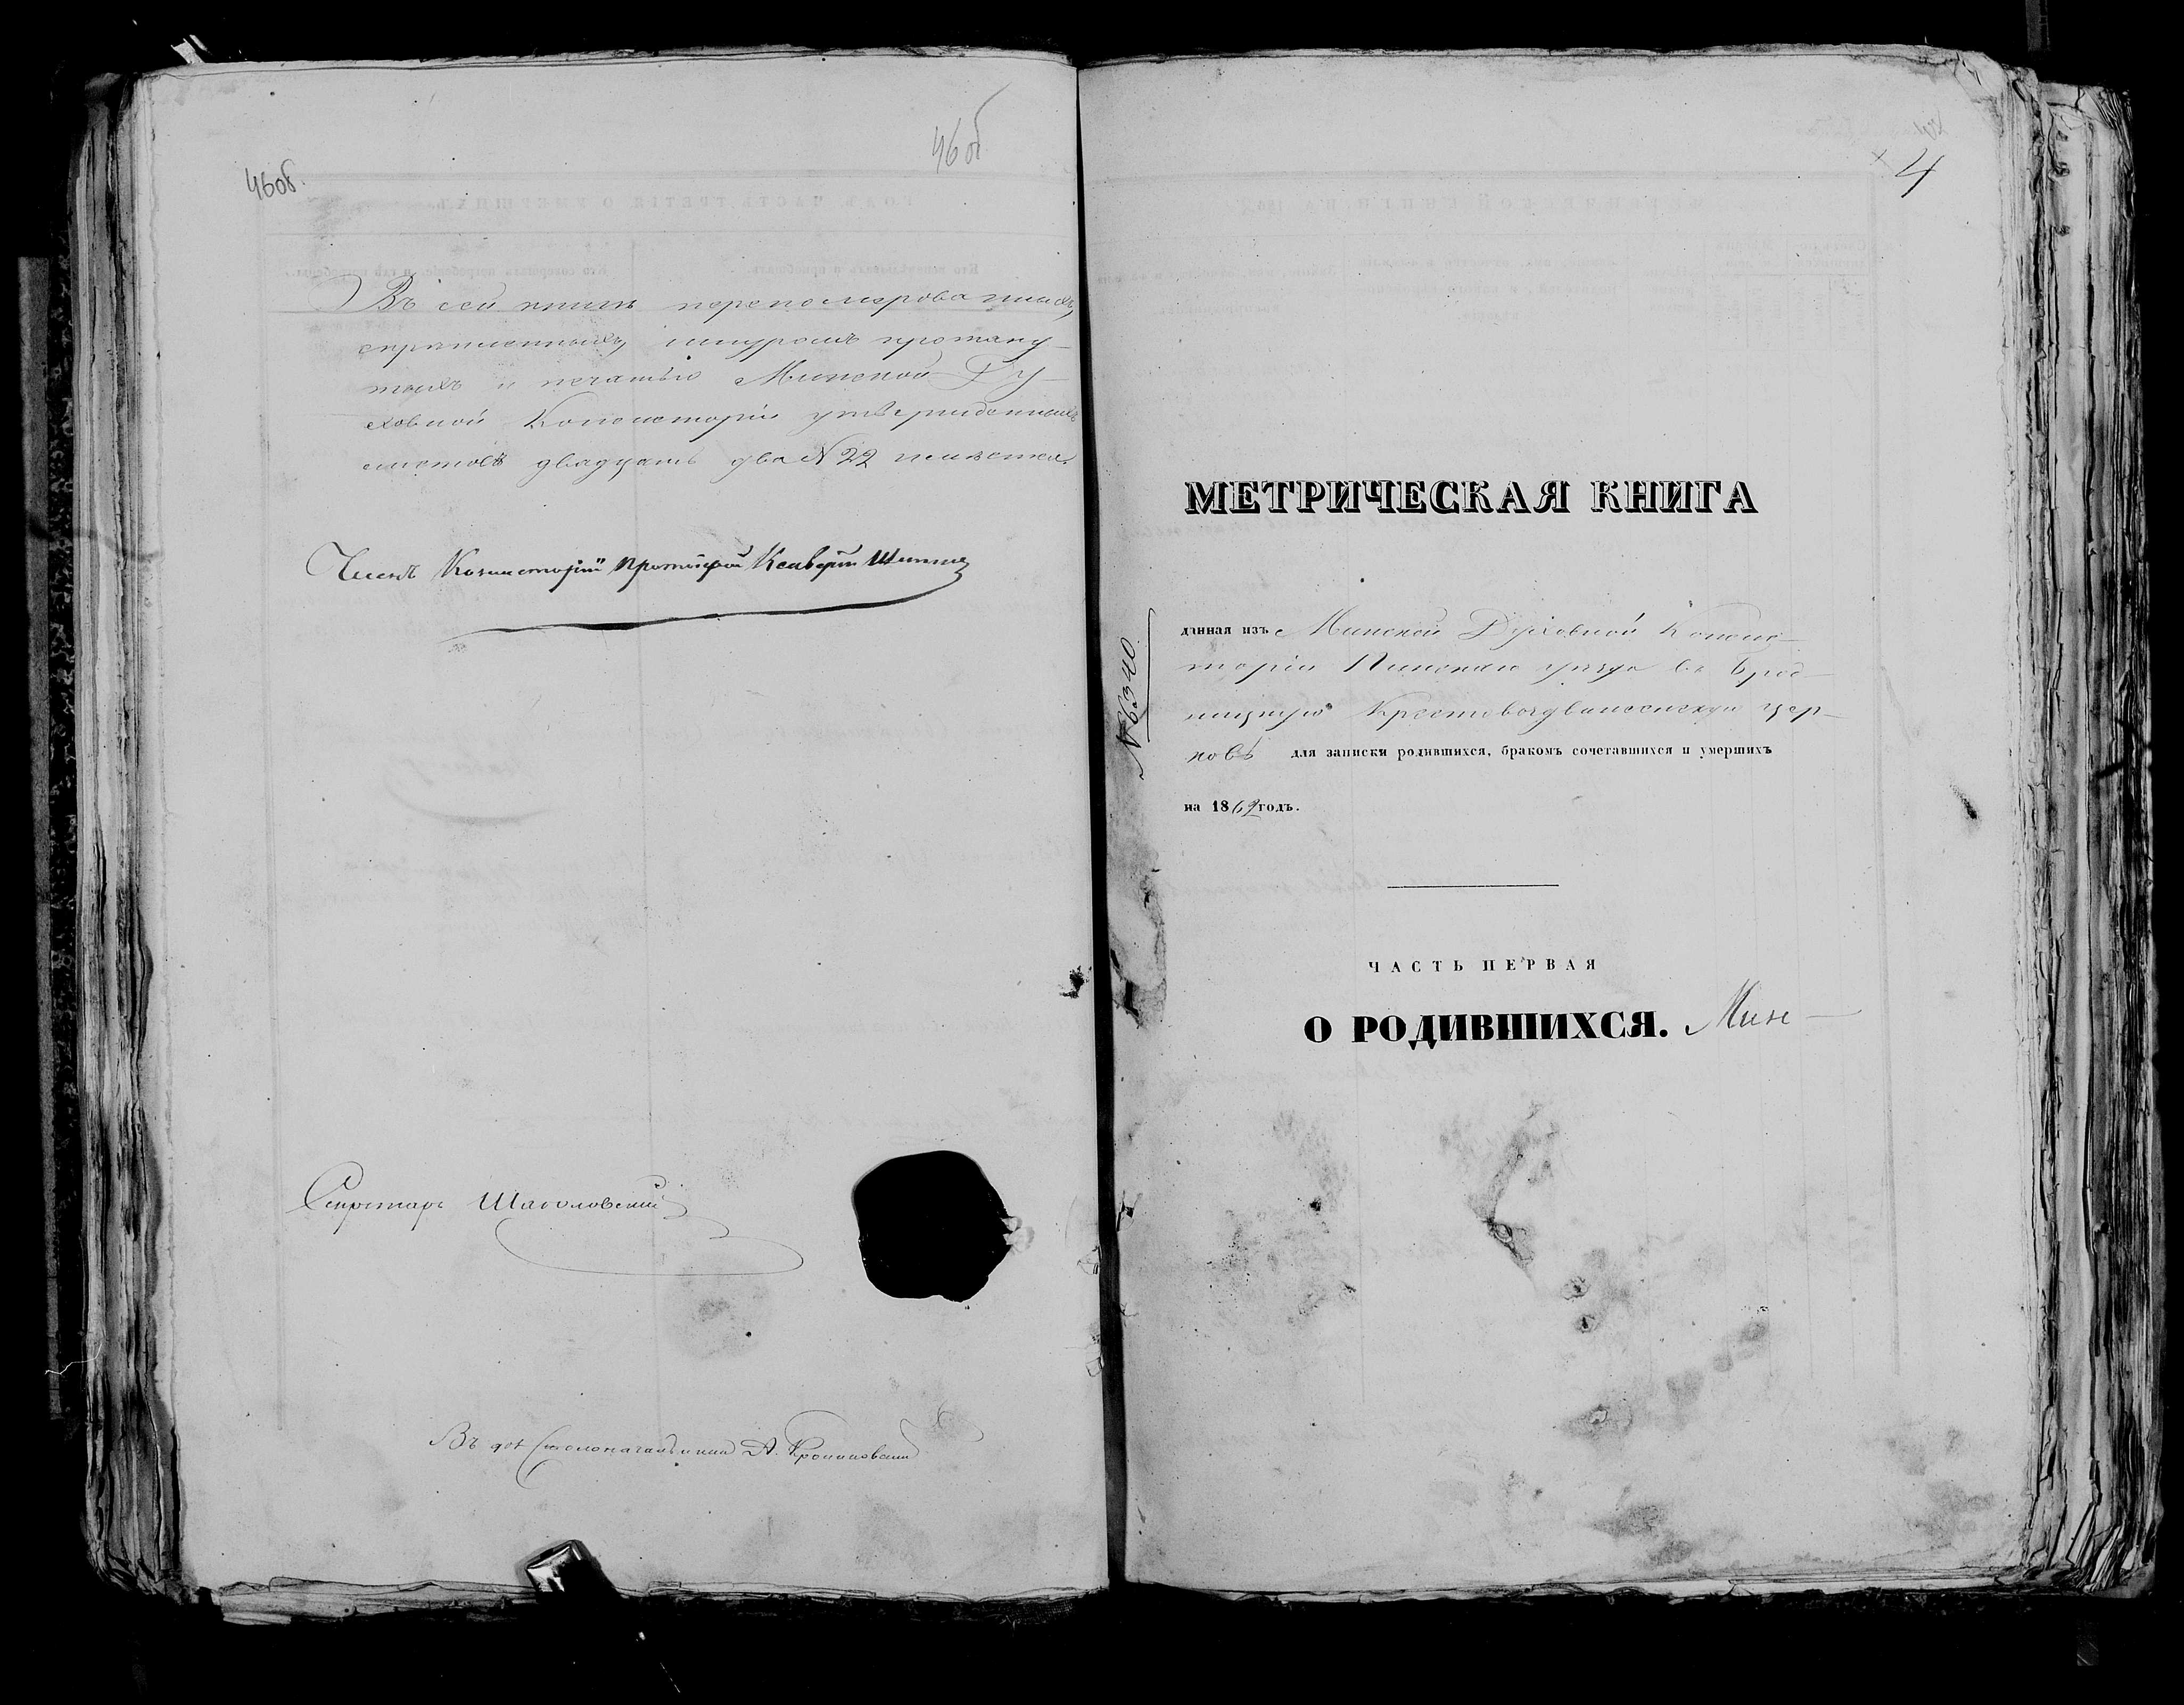 46об
46об.
Въ сей книгѣ перенумерованныхъ,
скрѣпленныхъ, шнуромъ протяну-
тыхъ и печатью Минской Ду-
ховной Консисторіи утвержденныхъ
листовъ двадцать два № 22 имѣется.
Членъ Консисторіи Протоіерей
Секретарь
Въ дол. Столоначальника А.
4
МЕТРИЧЕСКАЯ КНИГА
№ 6340
данная изъ Минской Духовной Консис-
торіи Пинскаго уѣзда въ Брод-
ницкую Крестовоздвиженскую цер-
ковь для записки родившихся, бракомъ сочетавшихся и умершихъ
на 1862 годъ.
ЧАСТЬ ПЕРВАЯ
О РОДИВШИХСЯ. Мин-